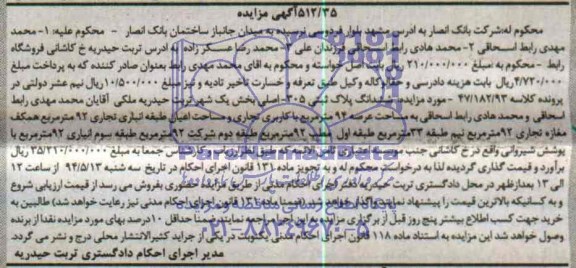 ۵۱۲/۳۵آگهی مزایده
محکوم له:شرکت بانک انصار به ادرس مشهد بلوار فردوسی نرسیده به میدان جانباز ساختمان بانک انصار - محکوم علیه: ۱-محمد
مهدی رابط اسحاقی ۲-محمد هادی رابط اسحاقی فرزندان علی ۳-محمد رضا عسکر زاده به ادرس تربت حیدریه خ کاشانی فروشگاه
رابط - محکوم به مبلغ ۲۱۰/۰۰۰/۰۰۰ ریال خواسته و محکوم به اقای مهدی رابط بعنوان صادر کننده که به پرداخت مبلغ
۴/۷۲۰/۰۰۰ریال بابت هزینه دادرسی و حق الوکاله وکیل طبق تعرفه و خسارت تاخیر تادیه و نیز مبلغ ۱۰/۵۰۰/۰۰۰ریال نیم عشر دولتی در
پرونده کلاسه ۴۷/۱۸۲/۹۳ - مورد مزایده ششدانگ پلاک ثبتی ۳۰۵- اصلی بخش یک شهر تربت حیدریه ملکی آقایان محمد مهدی رابط
اسحاقی و محمد هادی رابط اسحاقی به مساحت عرصه ۹۴مترمربع با کاربری تجاری و مساحت اعیان طبقه انباری تجاری ۹۲مترمربع همکف
مغازه تجاری ۹۲مترمربع نیم طبقه ۳۳مترمربع طبقه اول ۹۲مترمربع طبقه دوم شرکت ۹۲مترمربع طبقه سوم انباری ۹۲مترمربع با
پوشش شیروانی واقع در خ کاشانی جنب موسسه اعتباری ثامن الائمه که طبق نظر ارزیاب کارشناس جمعا به مبلغ ۳۵/۲۱۰/۰۰۰/۰۰۰ریال
برآورد و قیمت گذاری گردیده لذا به درخواست محکوم له و به تجویز ماده ۱۱۴ قانون اجرای احکام در تاریخ سه شنبه ۹۴/۵/۱۳ از ساعت ۱۲
الی ۱۳ بعدازظهر در محل دادگستری تربت حیدریه دفتر اجرای احکام مدنی از طریق مزایده حضوری بفروش می رسد از قیمت ارزیابی شروع
و به کسانیکه بالاترین قیمت را پیشنهاد نمایند واگذار خواهد شد (مفاد ماده قانون اجرای احکام مدنی نیز رعایت خواهد شد) طالبین به
خرید جهت کسب اطلاع بیشتر پنج روز قبل از برگزاری مزایده به این اجرا مراجعه نمایند ضمنا حداقل ۱۰ درصد بهای مورد مزایده نقدا از برنده
وصول خواهد شد این مزایده به استناد ماده ۱۱۸ قانون اجرای احکام مدنی یکنوبت در یکی از جراید کثیرالانتشار محلی درج و نشر می گردد
مدیر اجرای احکام دادگستری تربت حیدریه
ParsNamadData
۰۲۱-۸۸۳۴۹۶۷۰-۵